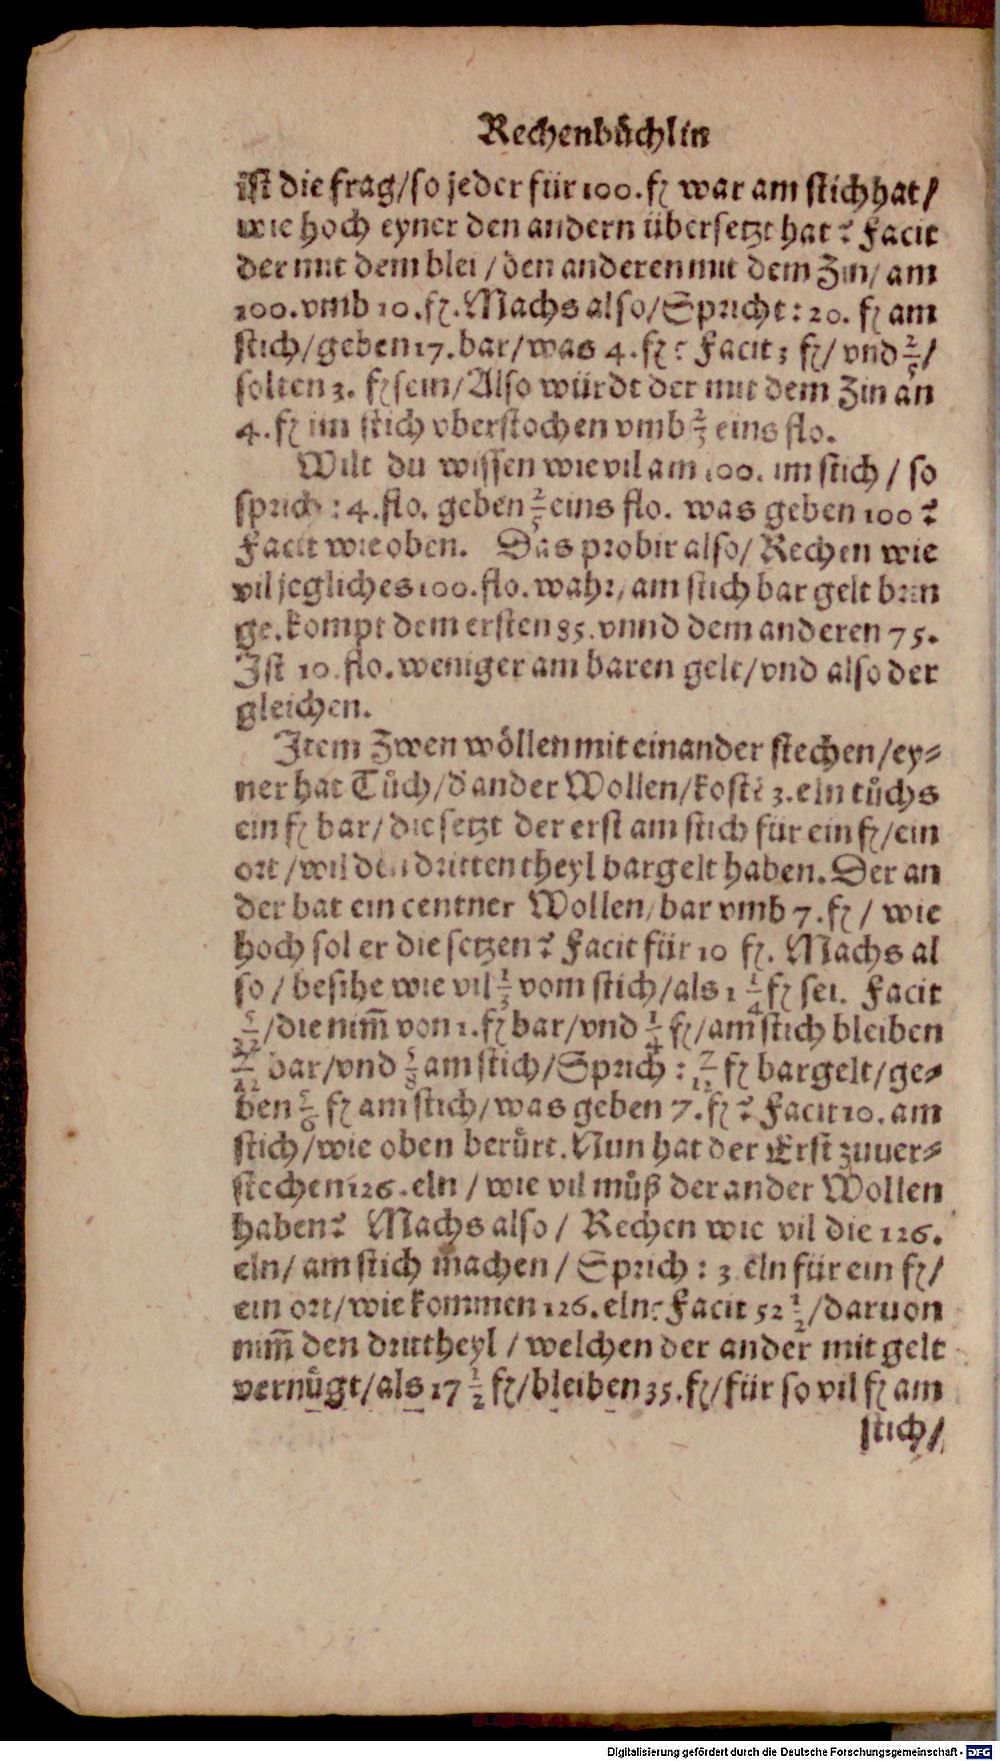 Rechenbůchlin
ist die frag/so jeder für 100. fl war am stich hat/
wie hoch eyner den andern übersetzt hat? Facit
der mit dem blei/den anderen mit dem Zin/am
100. vmb 10. fl. Machs also/Sprich: 20. fl am
stich/geben 17. bar/was 4. fl? Facit 3 fl/vnd 2/5/
solten 3. fl sein/Also würdt der mit dem Zin an
4. fl im stich vberstochen vmb 2/5 eins flo.
Wilt du wissen wie vil am 100. im stich/so
sprich: 4. flo. geben 2/5 eins flo. was geben 100?
Facit wie oben. Das probir also/Rechen wie
vil jegliches 100. flo. wahr/am stich bar gelt brin
ge. kompt dem ersten 85. vnnd dem anderen 75.
Ist 10. flo. weniger am baren gelt/vnd also der
gleichen.
Item Zwen wöllen mit einander stechen/ey⸗
ner hat Tůch/d'ander Wollen/kostē 3. eln tůchs
ein fl bar/die setzt der erst am stich für ein fl/ein
ort/wil den dritten theyl bargelt haben. Der an
der hat ein centner Wollen/bar vmb 7. fl/wie
hoch sol er die setzen? Facit für 10 fl. Machs al
so/besihe wie vil 1/3 vom stich/als 1 1/4 fl sei. Facit
5/12/die nim̃ von 1. fl bar/vnd 1/4 fl/am stich bleiben
7/12 bar/vnd 5/6 am stich/Sprich: 7/12 fl bargelt/ge⸗
ben 5/6 fl am stich/was geben 7. fl? Facit 10. am
stich/wie oben berůrt. Nun hat der Erst zuuer⸗
stechen 126. eln/wie vil můß der ander Wollen
haben? Machs also/Rechen wie vil die 126.
eln/am stich machen/Sprich: 3 eln für ein fl/
ein ort/wie kommen 126. eln? Facit 52 1/2/daruon
nim̃ den drittheyl/welchen der ander mit gelt
vernůgt/als 17 1/2 fl/bleiben 35. fl/für so vil fl am
stich/
Digitalisierung gefördert durch die Deutsche Forschungsgemeinschaft - DFG